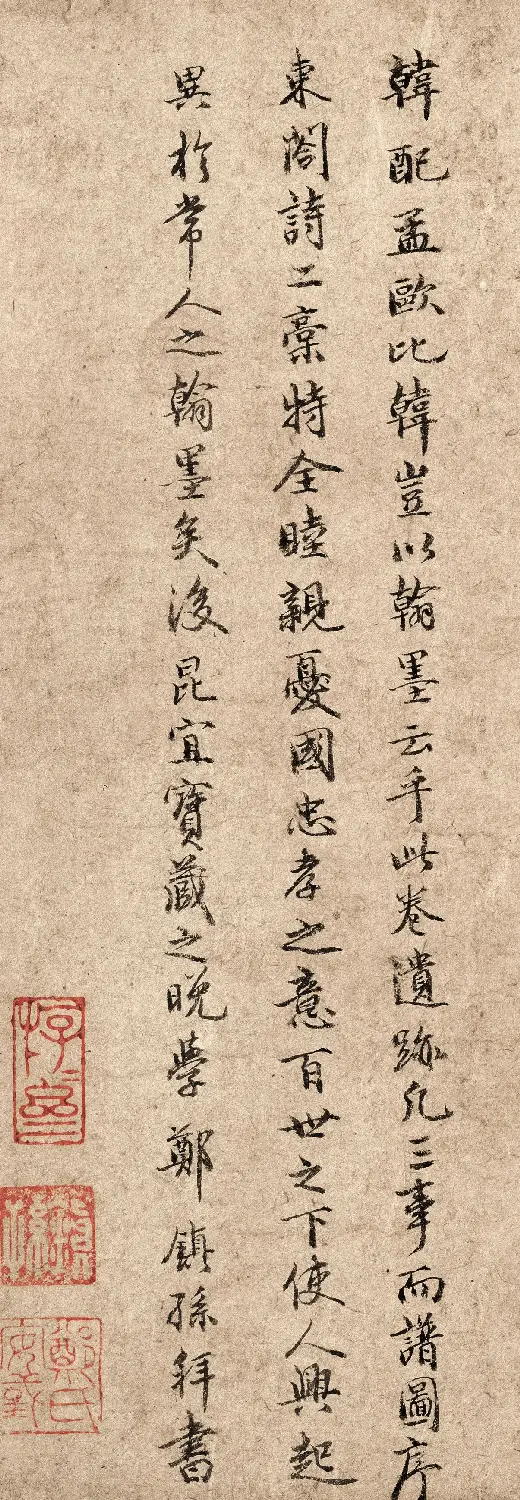 韓配孟歐比韓豈以翰墨云乎此卷遺跡凡三事而譜圖序
東閣詩二稾特全睦親憂國忠孝之意百世之下使人興起
異於常人之翰墨矣後昆宜寶藏之晚學鄭鎮孫拜書
鄭氏